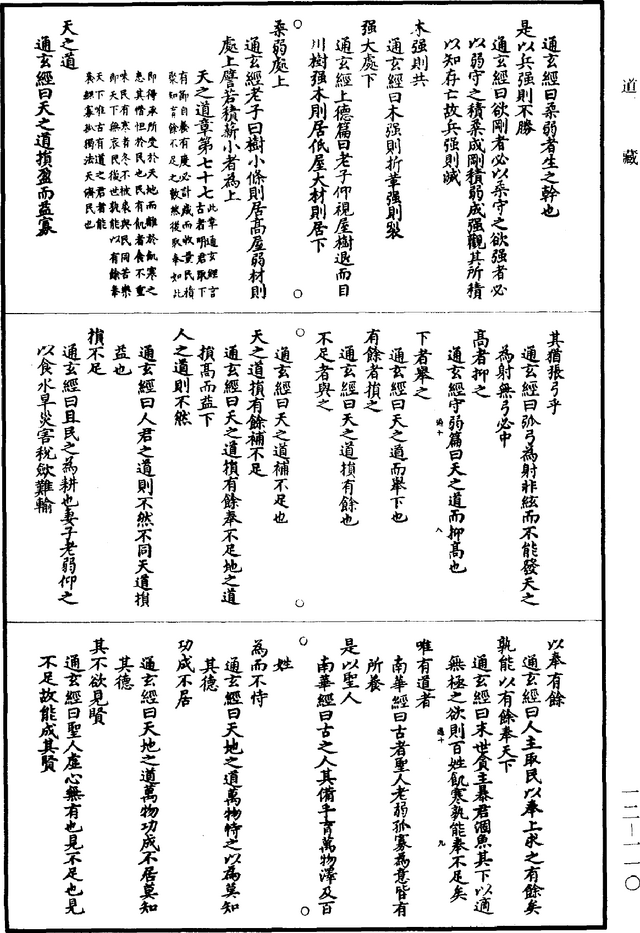 道藏
通玄經曰柔弱者生之幹也
是以兵强則不勝
通玄經曰欲剛者必以柔守之欲强者必
以弱守之積柔成剛積弱成强觀其所積
以知存亡故兵强則滅
木强則共
通玄經曰木强則折革强則裂
强大處下
通玄經上德篇曰老子仰視屋樹退而目
川樹强本則居低屋大材則居下
柔弱處上
通玄經老子曰樹小條則居高屋弱材則
處上譬若積薪小者為上
天之道章第七十七
此章通玄經言
古者明君取下
有節自養有度必計歲而收量民積
聚知有餘不足之數然後取奉如此
即得承所受於天地而離於飢寒之
患其憯怛於民也民有飢者食不重
味民有寒者冬不被裘與民同苦樂
即天下無哀民後世孰能以有餘奉
天下唯古有道之君者能
養鰥寡孤獨法天濟民也
天之道
通玄經曰天之道損盈而益寡
其猶張弓乎
通玄經曰弧弓為射非絃而不能發天之
為射無弓必中
高者抑之
通玄經守弱篇曰天之道而抑高也
下者舉之
通玄經曰天之道而舉下也
有餘者損之
通玄經曰天之道損有餘也
不足者與之
通玄經曰天之道補不足也
天之道損有餘補不足
通玄經曰天之道損有餘奉不足地之道
損高而益下
人之道則不然
通玄經曰人君之道則不然不同天道損
益也
損不足
通玄經曰且民之為耕也妻子老弱仰之
以食水旱災害稅斂難輸
以奉有餘
通玄經曰人主取民以奉上求之有餘矣
孰能以有餘奉天下
通玄經曰末世貪主暴君涸魚其下以適
無極之欲則百姓飢寒孰能奉不足矣
唯有道者
南華經曰古者聖人老弱孤寡為意皆有
所養
是以聖人
南華經曰古之人其備乎育萬物澤及百
姓
為而不恃
通玄經曰天地之道萬物恃之以為莫知
其德
功成不居
通玄經曰天地之道萬物功成不居莫知
其德
其不欲見賢
通玄經曰聖人虛心無有也見不足也見
不足故能成其賢
一二—一一〇